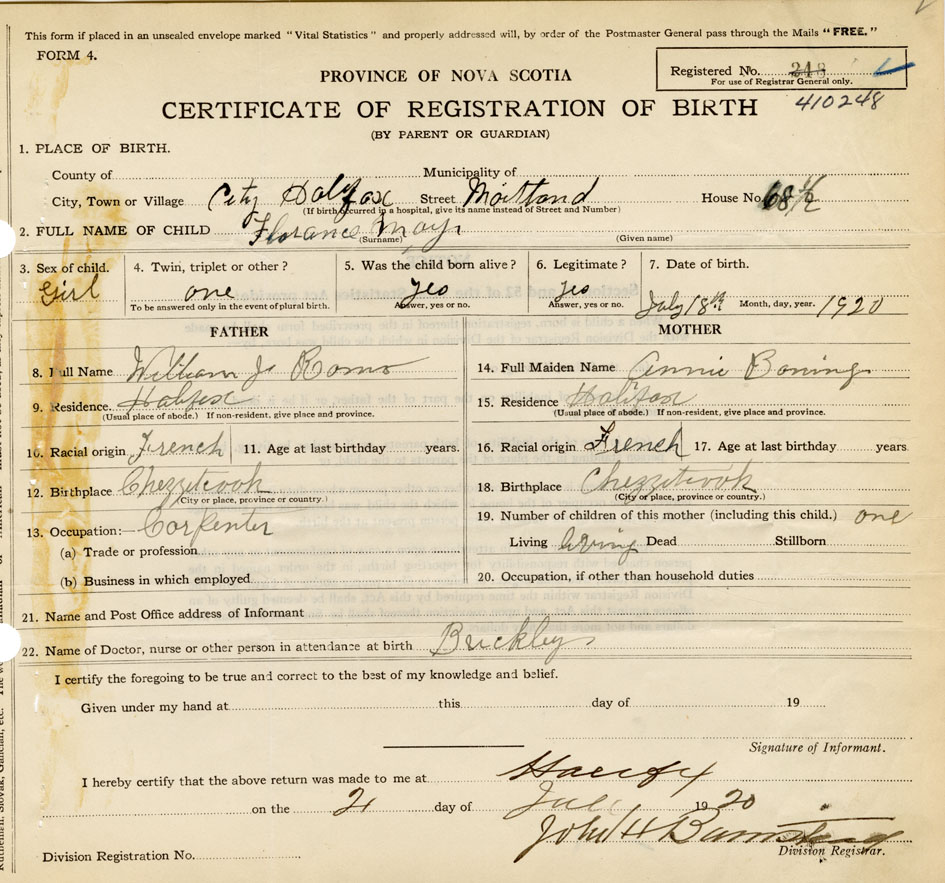 This form if placed in an unsealed envelope marked "Vital Statistics" and properly addressed will, by order of the Postmaster General pass through the Mails "FREE."
FORM 4.
PROVINCE OF NOVA SCOTIA
Registered No. 248
For use of Registrar General only.
CERTIFICATE OF REGISTRATION OF BIRTH 410248
(BY PARENT OR GUARDIAN)
1. PLACE OF BIRTH.
County of Municipality of
City, Town or Village City Halifax Street Maitland House No. 68 1/2
(If birth occurred in a hospital, give its name instead of Street and Number)
2. FULL NAME OF CHILD Florance May
(Surname) (Given name)
3. Sex of child. 4. Twin, triplet or other? 5. Was the child born alive? 6. Legitimate? 7. Date of birth.
Girl one yes yes July 18th 1920
To be answered only in the event of plural birth. Answer, yes or no. Answer, yes or no. Month, day, year.
FATHER MOTHER
8. Full Name William J. Roma
14. Full Maiden Name Annie Boning
9. Residence. Halifax
15. Residence Halifax
(Usual place of abode.) If non-resident, give place and province.
(Usual place of abode.) If non-resident, give place and province.
10. Racial origin French 11. Age at last birthday years.
16. Racial origin French 17. Age at last birthday years.
12. Birthplace Chezzitcook
(City or place, province or country.)
18. Birthplace Chezzitcook
(City or place, province or country.)
13. Occupation: Carpenter
19. Number of children of this mother (including this child.) one
(a) Trade or profession
Living living Dead Stillborn
(b) Business in which employed
20. Occupation, if other than household duties
21. Name and Post Office address of Informant
22. Name of Doctor, nurse or other person in attendance at birth Buckley
I certify the foregoing to be true and correct to the best of my knowledge and belief.
Given under my hand at this day of 19
Signature of Informant.
I hereby certify that the above return was made to me at Halifax
on the 21 day of July 1920
John H Barnstead
Division Registration No. Division Registrar.